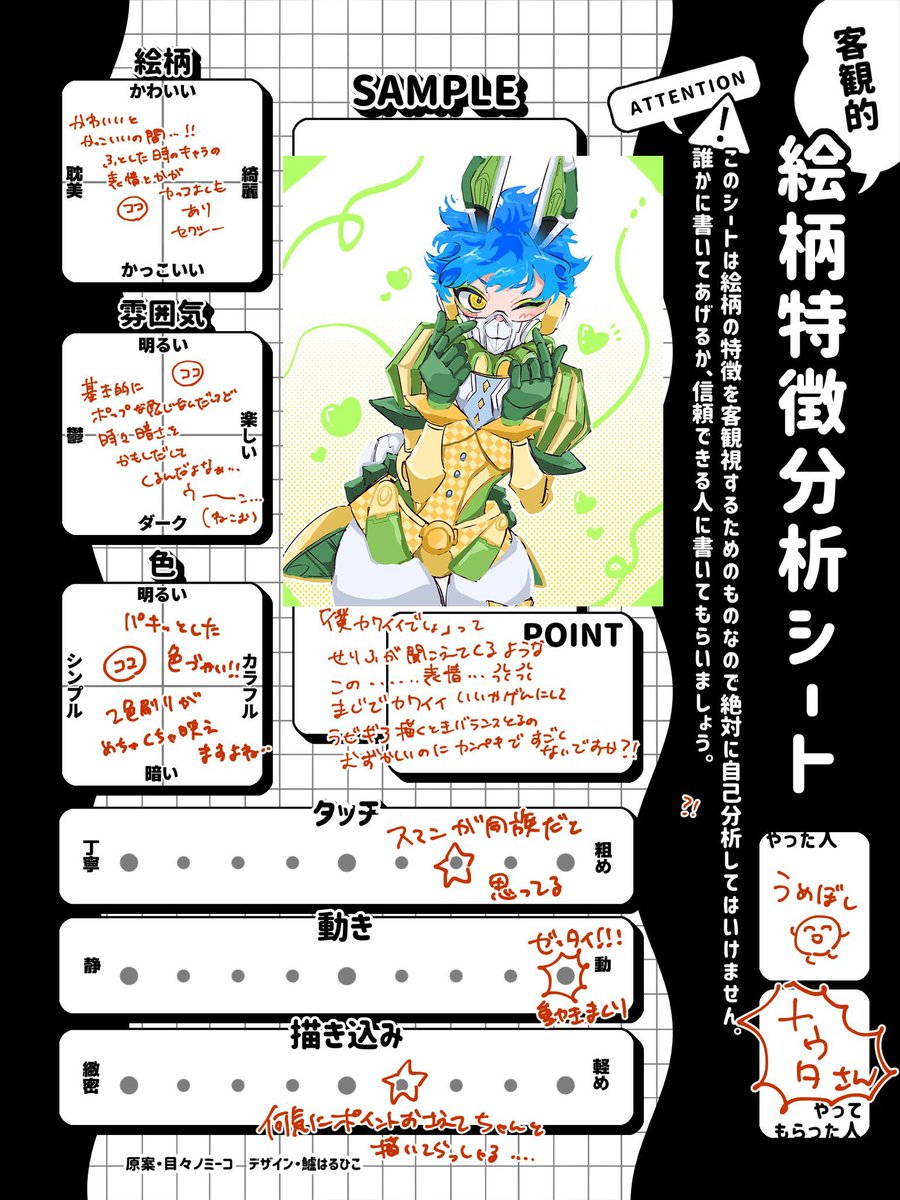 客観的
絵柄特徴分析シート
ATTENTION
!
このシートは絵柄の特徴を客観視するためのものなので絶対に自己分析してはいけません。
誰かに書いてあげるか、信頼できる人に書いてもらいましょう。
?!
絵柄
かわいい
耽美
綺麗
かっこいい
かわいいと
かっこいいの間…!!
ふとした時のキャラの
表情とかが
カッコよしも
あり
セクシー
ココ
雰囲気
明るい
鬱
楽しい
ダーク
ココ
基本的に
ポップな感じなんだけど
時々暗さを
かもしだして
くるんだよなぁ…
ウーン…
(ねこむ)
色
明るい
シンプル
カラフル
暗い
パキッとした
色づかい!!
ココ
2色刷りが
めちゃくちゃ映え
ますよね…
SAMPLE
POINT
「僕カワイイでしょ」って
せりふが聞こえてくるような
この……表情…
まじでカワイイ いいかげんにして
うでギる描くときバランスとるの
むずかしいのにカンペキで すごく
ないですか?!
タッチ
丁寧
粗め
スマンが同族だと
思ってる
動き
静
動
ゼッタイ!!!
動きまくり
描き込み
緻密
軽め
何気にポイントおさえてちゃんと
描いてらっしゃる….
やった人
うめぼし
ナウタさん
やって
もらった人
原案・目々ノミーコ デザイン・鱸はるひこ